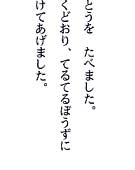 とうを　たべました。
くどおり、てるてるぼうずに
けてあげました。